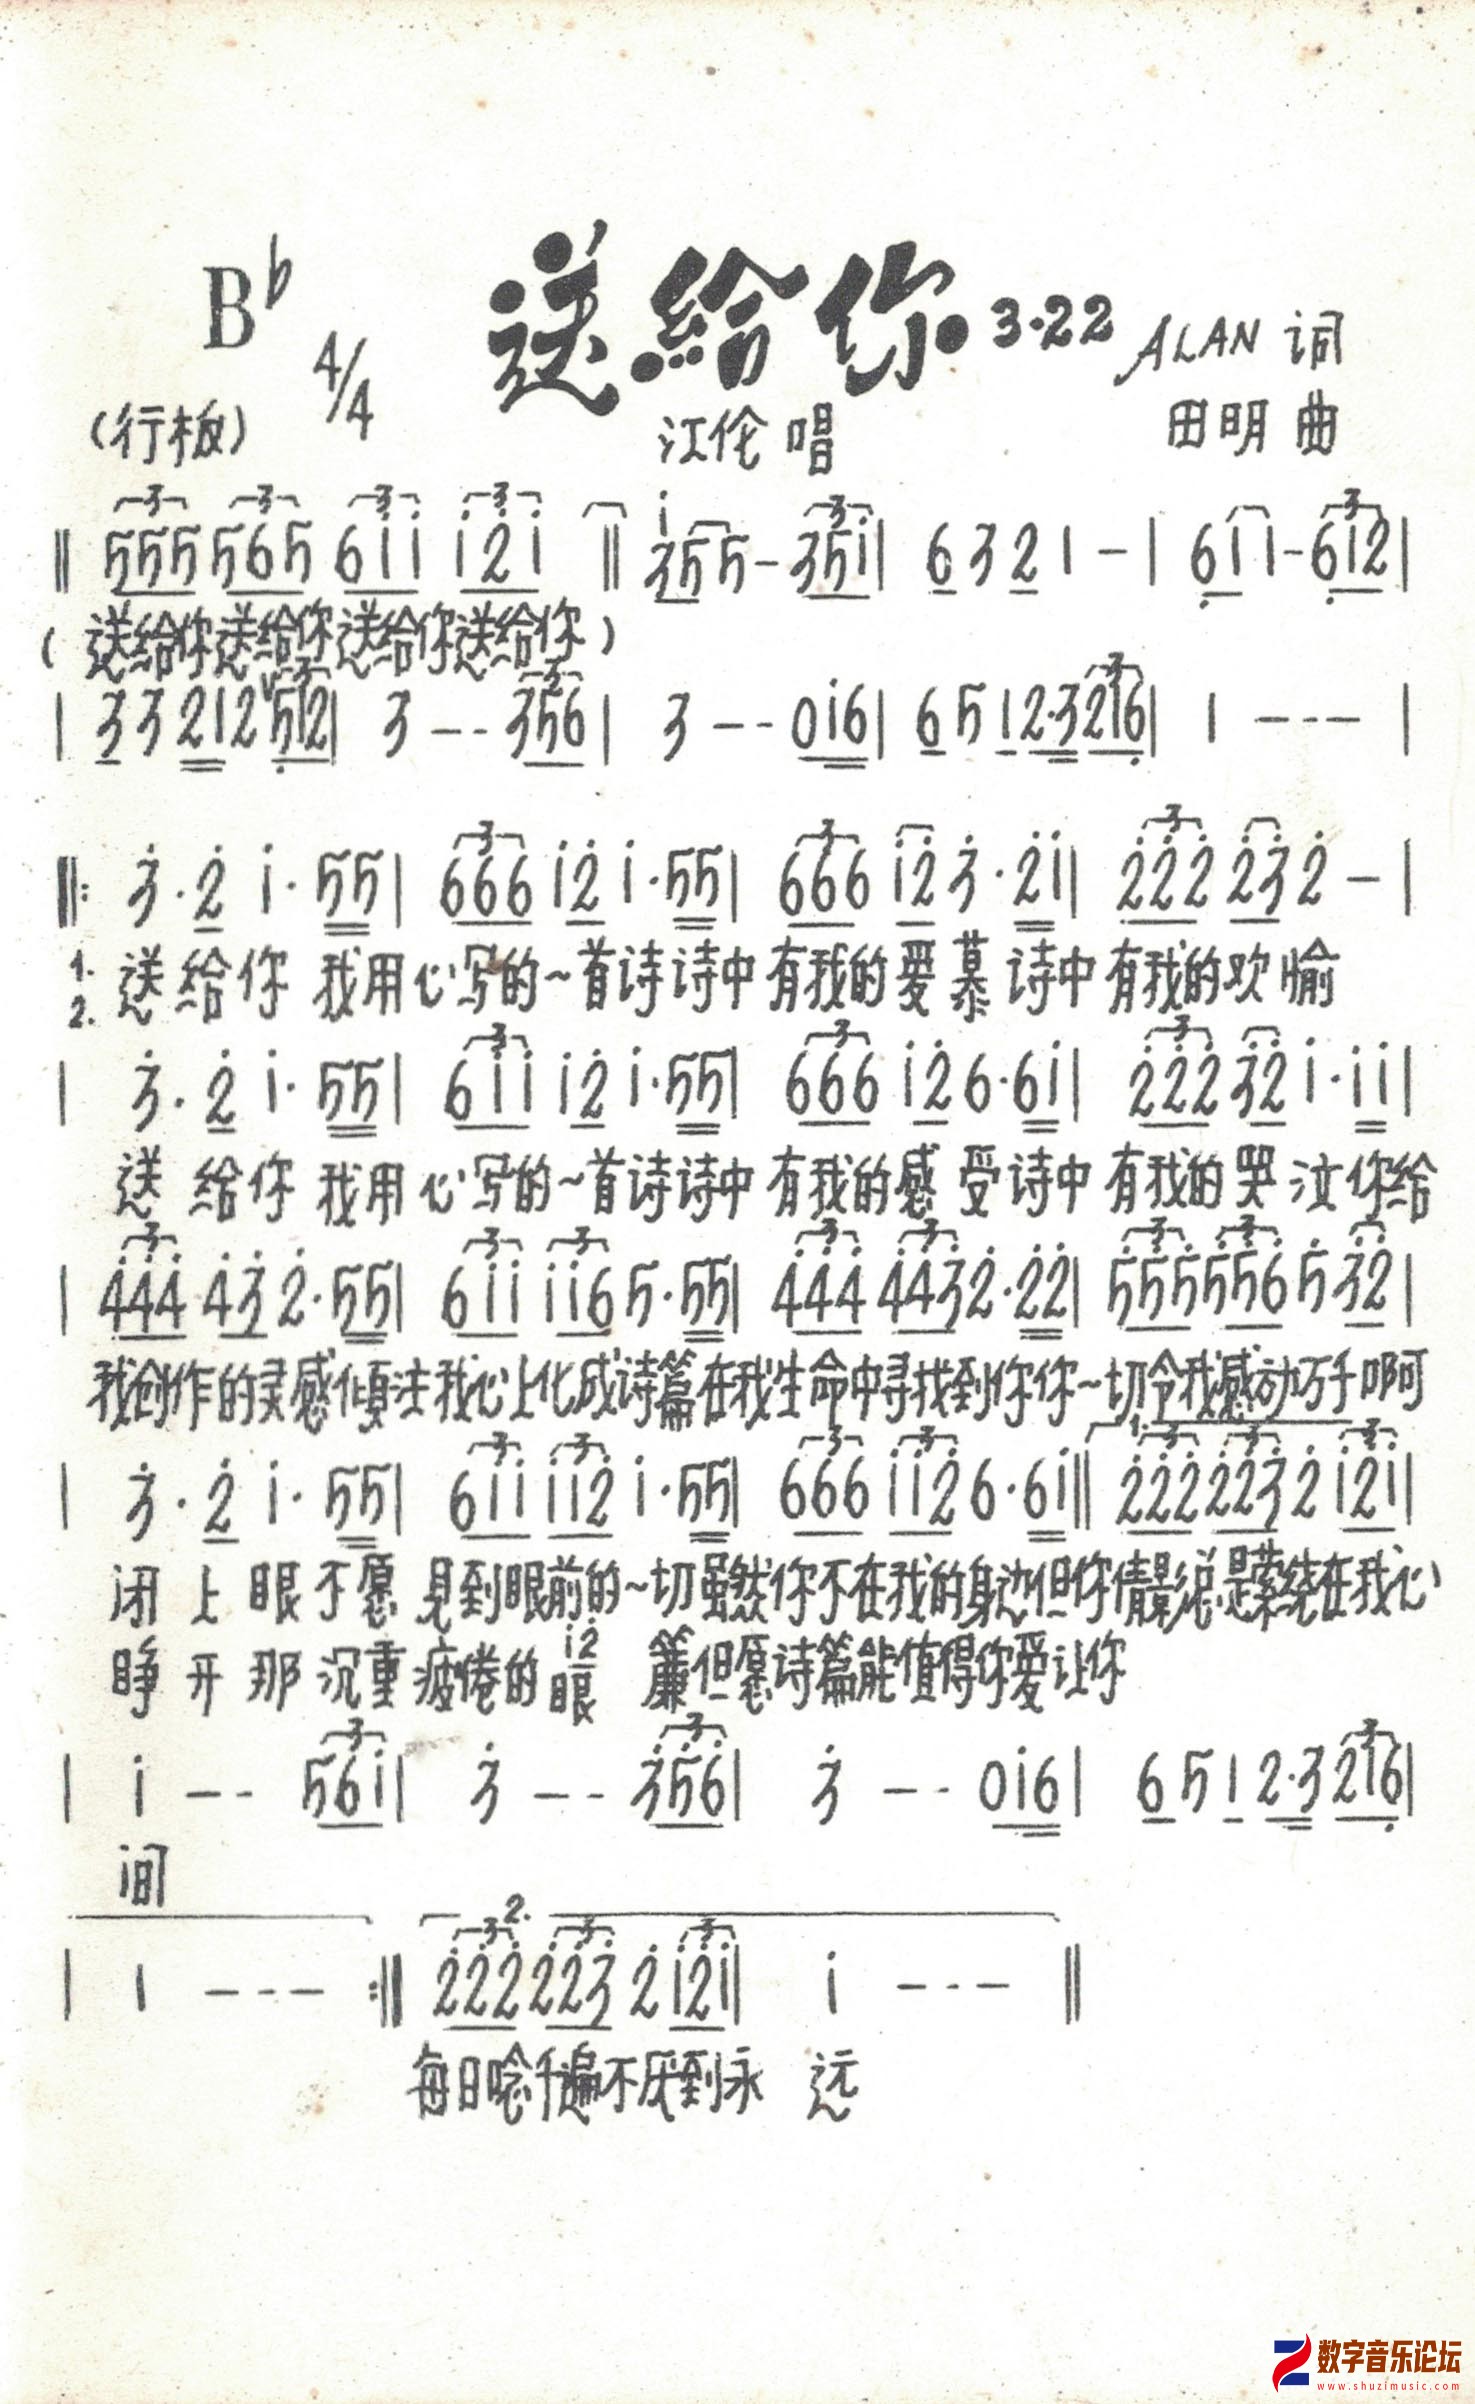 B♭ 4/4 送給你 3·22 ALAN 词
(行板) 江伦 唱 田明 曲
‖ 555 565 6i̇i̇ i̇2̇i̇ ‖ 355- 35i̇ | 6 3 2 1 - | 6 1 1 - 612 |
( 送给你送给你送给你送给你 )
| 3 3 2 1 2 512 | 3 - - 356 | 3 - - 0i̇6 | 6 5 1 2·3 216 | 1 - - - |
‖: 3̇·2̇ i̇·55 | 666 i̇2̇ i̇·55 | 666 i̇2̇ 3̇·2̇i̇ | 2̇2̇2̇ 2̇3̇ 2̇ - |
1. 送给你 我用心写的~首诗诗中有我的爱慕诗中有我的欢愉
2.
| 3̇·2̇ i̇·55 | 6i̇i̇ i̇2̇ i̇·55 | 666 i̇2̇ 6·6i̇ | 2̇2̇2̇ 3̇2̇ i̇·i̇i̇ |
送给你 我用心写的~首诗诗中有我的感受诗中有我的哭泣你给
| 4̇4̇4̇ 4̇3̇ 2̇·55 | 6i̇i̇ i̇i̇6 5·55 | 4̇4̇4̇ 4̇4̇3̇ 2̇·2̇2̇ | 5̇5̇5̇ 5̇5̇6̇ 5̇ 3̇2̇ |
我创作的灵感倾注我心上化成诗篇在我生命中寻找到你你~切令我感动万千啊
| 3̇·2̇ i̇·55 | 6i̇i̇ i̇i̇2̇ i̇·55 | 666 i̇i̇2̇ 6·6i̇ ‖ 1. 2̇2̇2̇ 2̇2̇3̇ 2̇ i̇2̇i̇ |
闭上眼不愿见到眼前的~切虽然你不在我的身边但你倩影总是萦绕在我心
i̇2̇
睁开那沉重疲倦的眼簾但愿诗篇能值得你爱让你
| i̇ - - 56i̇ | 3̇ - - 3̇5̇6̇ | 3̇ - - 0i̇6 | 6 5 1 2·3 216 |
间
| 1 - - - :‖ 2. 2̇2̇2̇ 2̇2̇3̇ 2̇ i̇2̇i̇ | i̇ - - - ‖
每日唸千遍不厌到永远
数字音乐论坛
www.shuzimusic.com